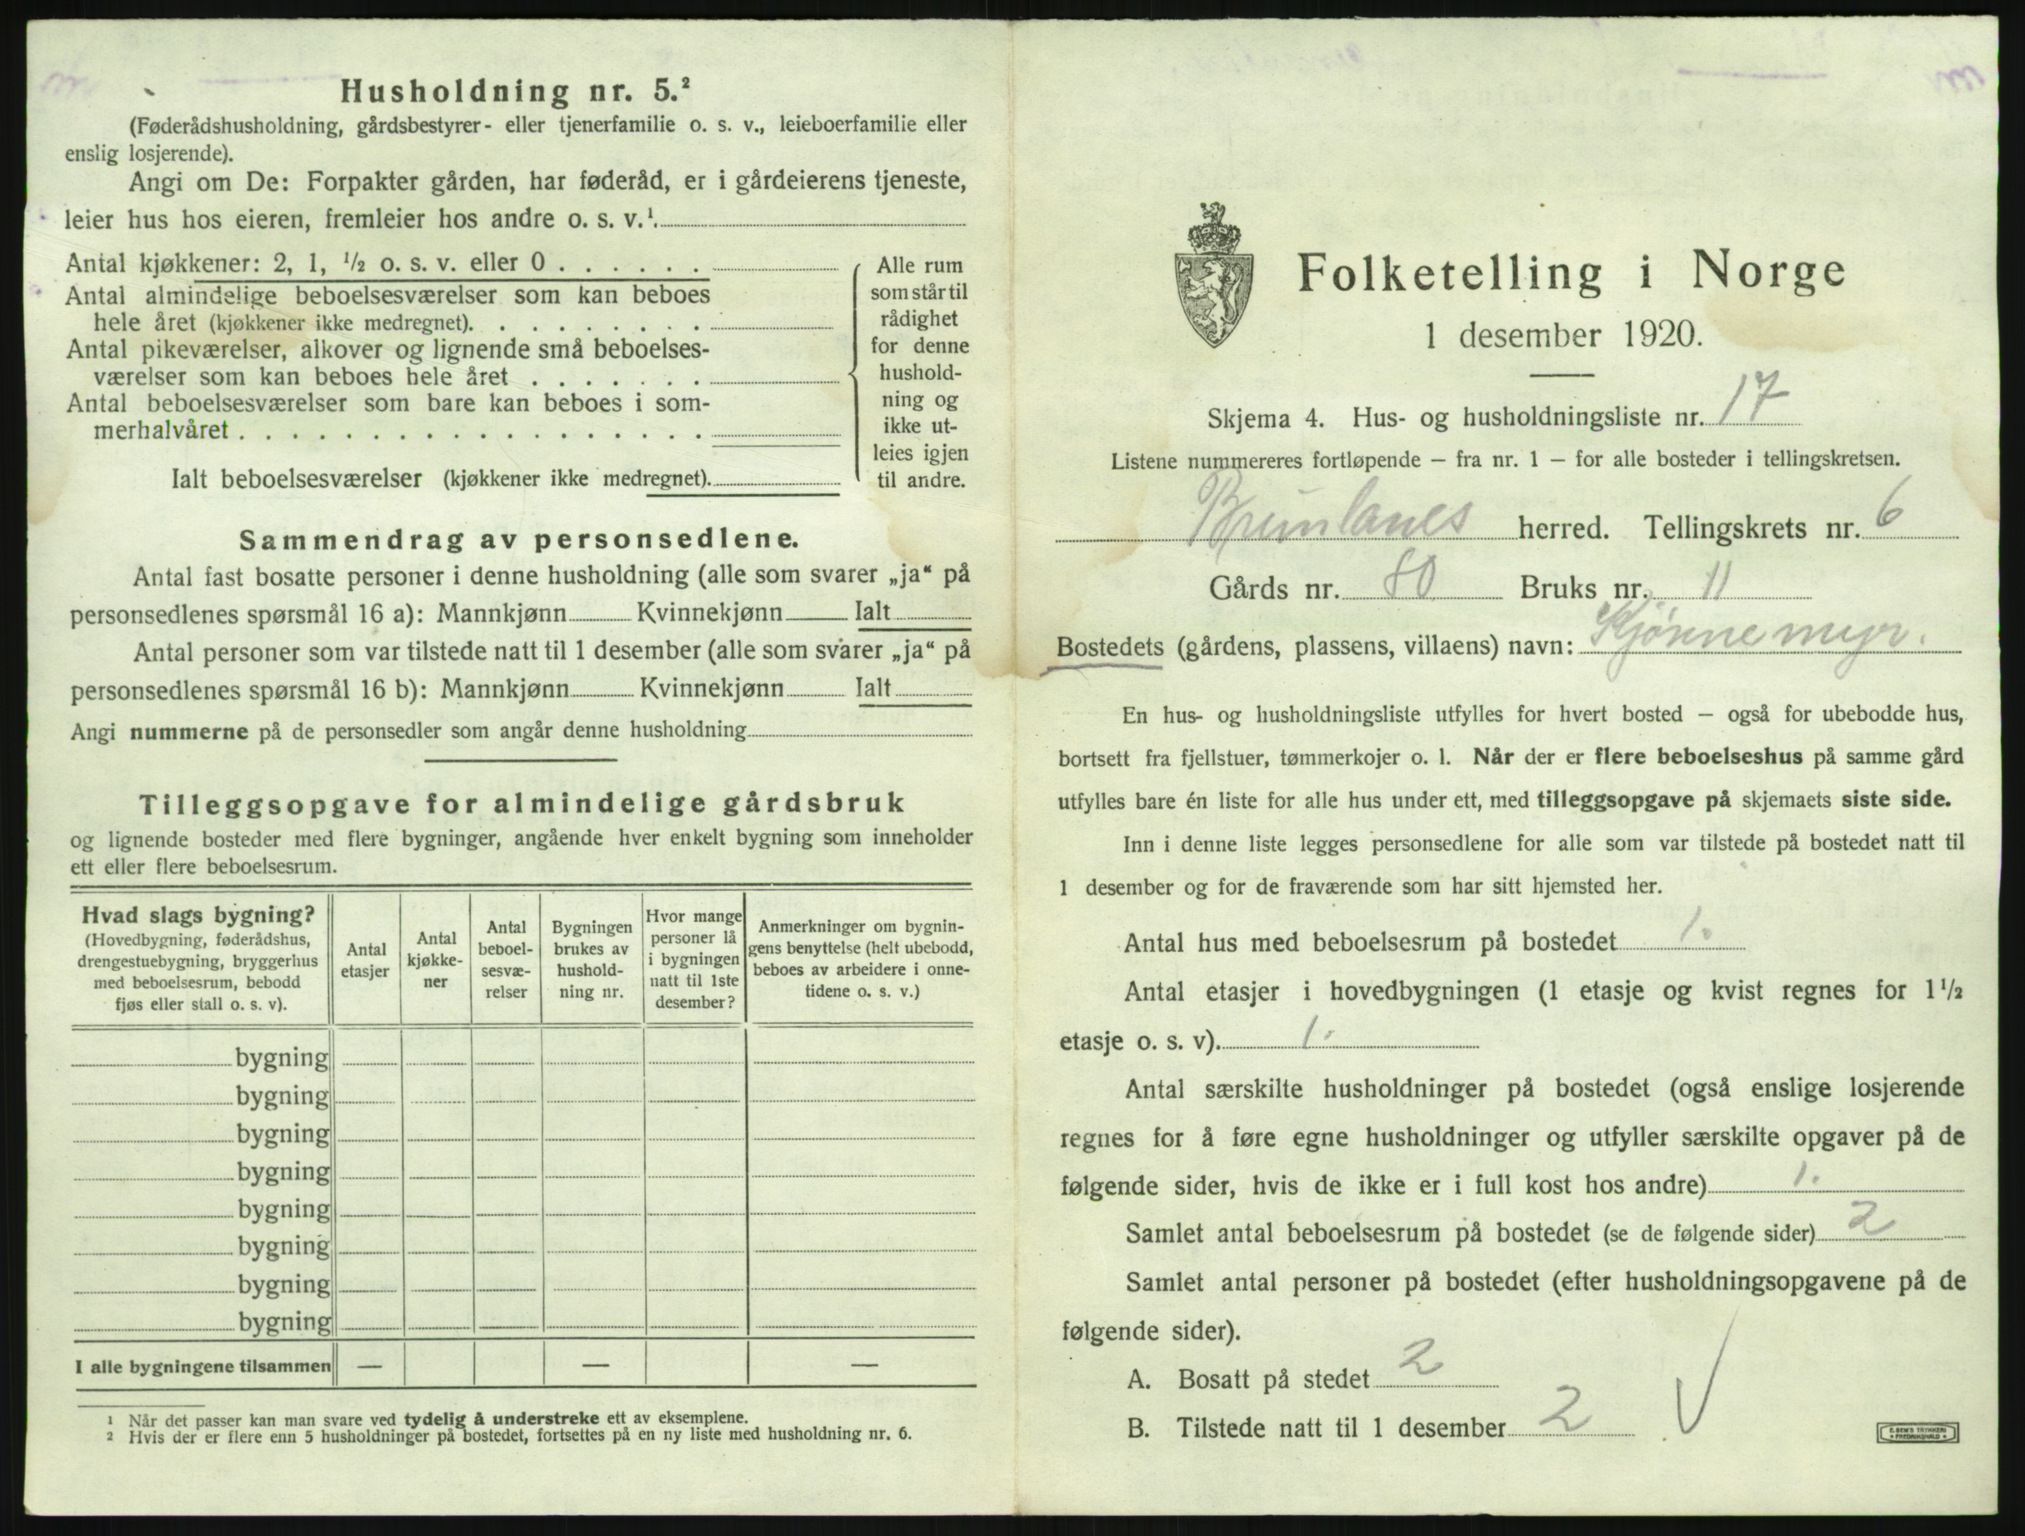 Husholdning nr. 5.²
(Føderådshusholdning, gårdsbestyrer- eller tjenerfamilie o. s. v., leieboerfamilie eller
enslig losjerende).
Angi om De: Forpakter gården, har føderåd, er i gårdeierens tjeneste,
leier hus hos eieren, fremleier hos andre o. s. v.¹
Antal kjøkkener: 2, 1, ½ o. s. v. eller 0 . . . . . .
Antal almindelige beboelsesværelser som kan beboes
hele året (kjøkkener ikke medregnet). . . . . . . . .
Antal pikeværelser, alkover og lignende små beboelses-
værelser som kan beboes hele året . . . . . . .
Antal beboelsesværelser som bare kan beboes i som-
merhalvåret . . . . . . . . . . . . . . . . . .
Ialt beboelsesværelser (kjøkkener ikke medregnet).
Alle rum
som står til
rådighet
for denne
hushold-
ning og
ikke ut-
leies igjen
til andre.
Sammendrag av personsedlene.
Antal fast bosatte personer i denne husholdning (alle som svarer „ja“ på
personsedlenes spørsmål 16 a): Mannkjønn Kvinnekjønn Ialt
Antal personer som var tilstede natt til 1 desember (alle som svarer „ja“ på
personsedlenes spørsmål 16 b): Mannkjønn Kvinnekjønn Ialt
Angi nummerne på de personsedler som angår denne husholdning
Tilleggsopgave for almindelige gårdsbruk
og lignende bosteder med flere bygninger, angående hver enkelt bygning som inneholder
ett eller flere beboelsesrum.
Hvad slags bygning?
(Hovedbygning, føderådshus,
drengestuebygning, bryggerhus
med beboelsesrum, bebodd
fjøs eller stall o. s. v).
Antal
etasjer
Antal
kjøkke-
ner
Antal
beboel-
sesvæ-
relser
Bygningen
brukes av
hushold-
ning nr.
Hvor mange
personer lå
i bygningen
natt til 1ste
desember?
Anmerkninger om bygnin-
gens benyttelse (helt ubebodd,
beboes av arbeidere i onne-
tidene o. s. v.)
bygning
bygning
bygning
bygning
bygning
bygning
bygning
bygning
I alle bygningene tilsammen — — —
¹ Når det passer kan man svare ved tydelig å understreke ett av eksemplene.
² Hvis der er flere enn 5 husholdninger på bostedet, fortsettes på en ny liste med husholdning nr. 6.
Folketelling i Norge
1 desember 1920.
Skjema 4. Hus- og husholdningsliste nr. 17
Listene nummereres fortløpende — fra nr. 1 — for alle bosteder i tellingskretsen.
Brunlanes herred. Tellingskrets nr. 6
Gårds nr. 80 Bruks nr. 11
Bostedets (gårdens, plassens, villaens) navn: Kjønnemyr.
En hus- og husholdningsliste utfylles for hvert bosted — også for ubebodde hus,
bortsett fra fjellstuer, tømmerkojer o. l. Når der er flere beboelseshus på samme gård
utfylles bare én liste for alle hus under ett, med tilleggsopgave på skjemaets siste side.
Inn i denne liste legges personsedlene for alle som var tilstede på bostedet natt til
1 desember og for de fraværende som har sitt hjemsted her.
Antal hus med beboelsesrum på bostedet 1.
Antal etasjer i hovedbygningen (1 etasje og kvist regnes for 1½
etasje o. s. v). 1.
Antal særskilte husholdninger på bostedet (også enslige losjerende
regnes for å føre egne husholdninger og utfyller særskilte opgaver på de
følgende sider, hvis de ikke er i full kost hos andre) 1.
Samlet antal beboelsesrum på bostedet (se de følgende sider) 2
Samlet antal personer på bostedet (efter husholdningsopgavene på de
følgende sider).
A. Bosatt på stedet 2
B. Tilstede natt til 1 desember 2